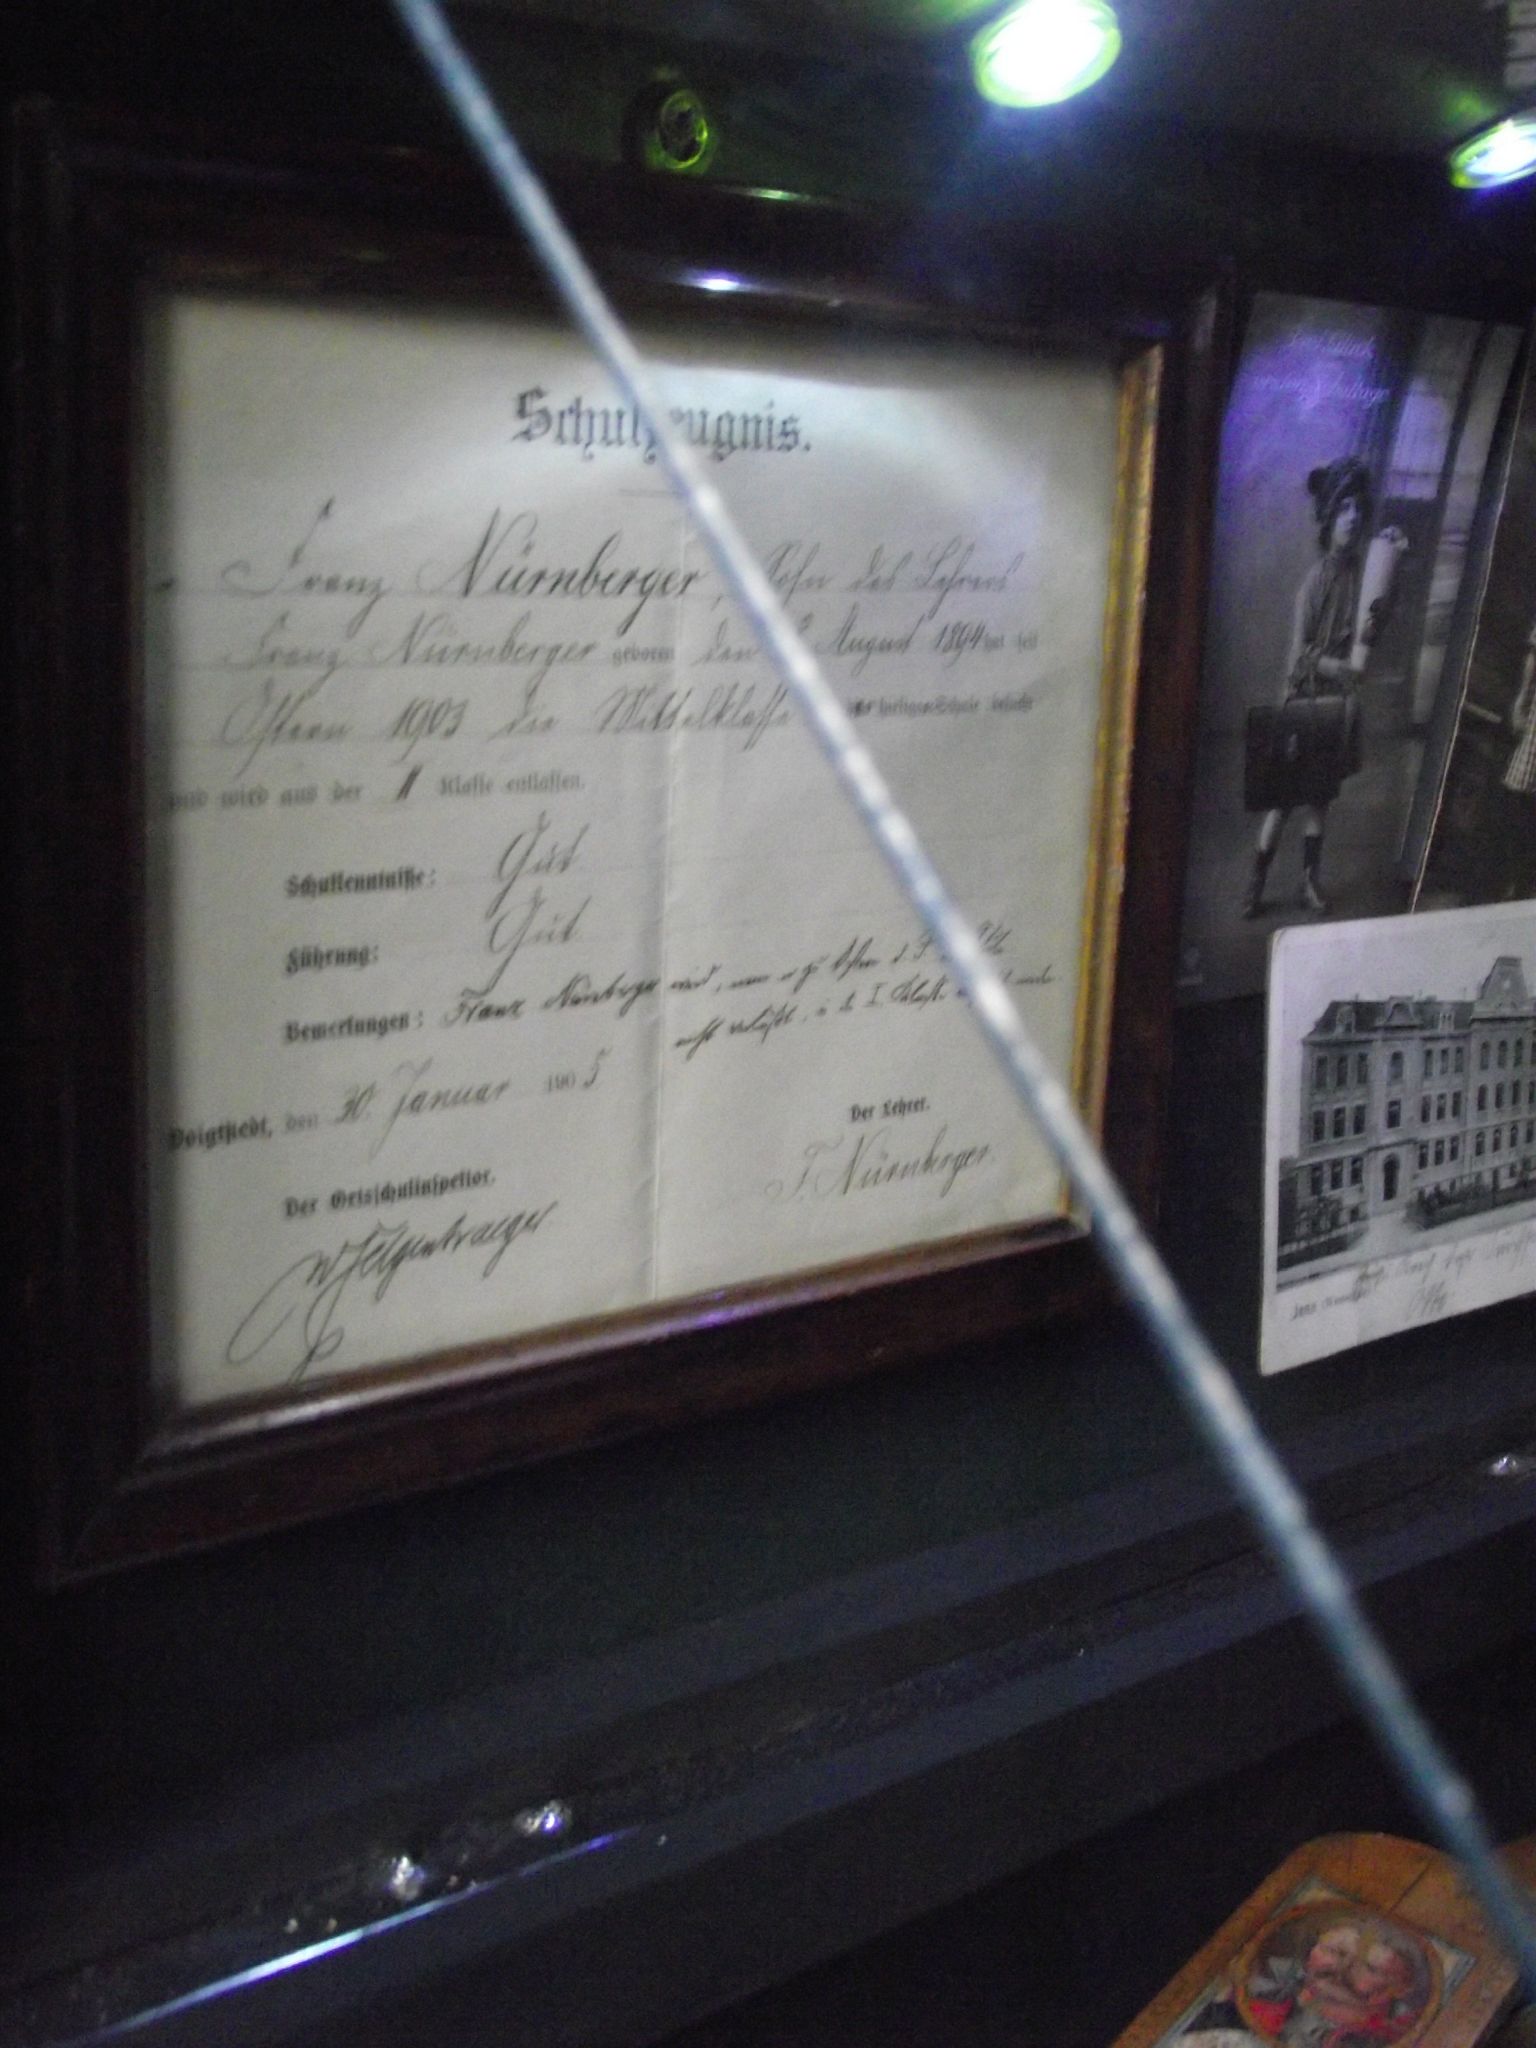 Schulzeugnis.
Franz Nürnberger, Sohn des Lehrers
Franz Nürnberger geboren den August 1894 hat seit
Ostern 1903 die Mittelklasse hiesigen Schule besucht
und wird aus der II Klasse entlassen.
Schulkenntniße: Gut
Führung: Gut
Bemerkungen: Franz Nürnberger wird, wenn er zu Ostern d. J.
nicht in d. I. Klasse
Voigtstedt, den 30. Januar 1905
Der Lehrer.
F. Nürnberger.
Der Ortsschulinspektor.
W Felgentraeger
Jena